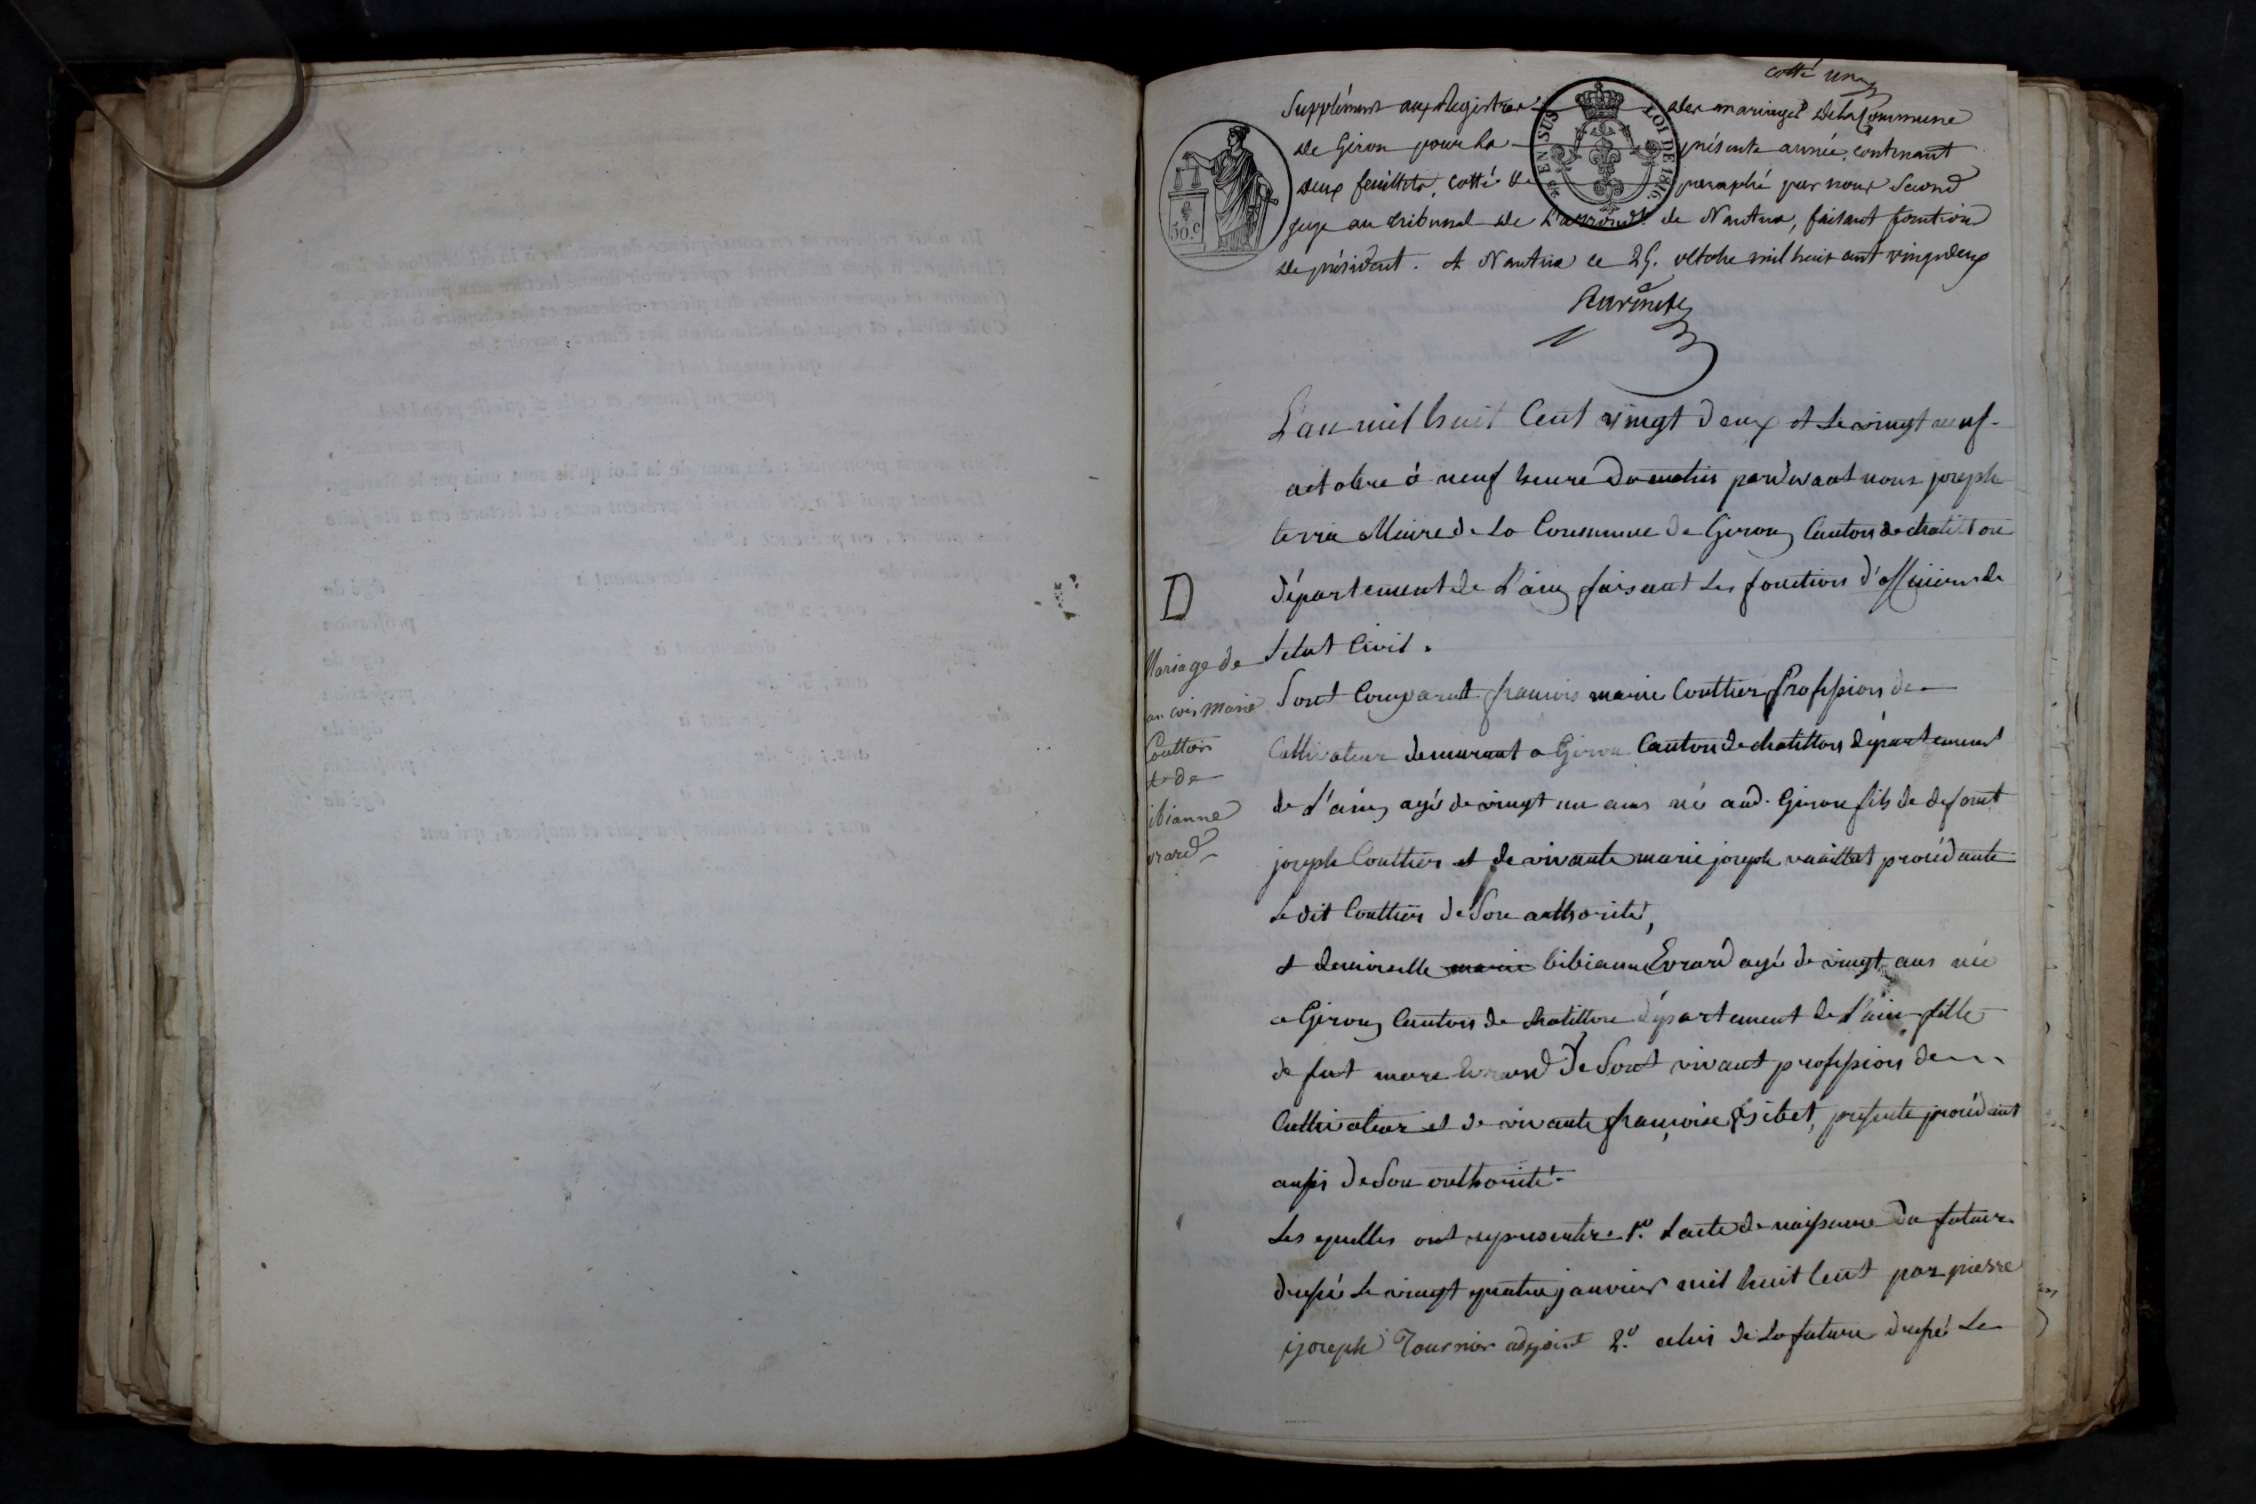 cotté un
Supplément aux Registres des mariages de la Commune
de Giron pour la présente année, contenant
deux feuillets, cotté et paraphé par nous Second
juge au tribunal de l'arrondt de Nantua, faisant fonction
de président. A Nantua ce 25. octobre mil huit cent vingt deux
EN SUS
LOI DE 1816.
50.c
L'an mil huit Cent vingt deux et le vingt neuf
octobre à neuf heure du matin pardevant nous joseph
terria Maire de la Commune de Giron Canton de chatillon
département de L'ain faisant les fonction d'officiers de
l'etat Civil.
D
Mariage de
an cois Marie
Couttier
et de
ibianne
vrard
Sont Comparutt francois marie Couttier Profession de
Cultivateur demurant a Giron Canton de chatillon département
de L'ain agé de vingt un ans né aud. Giron fils de defont
joseph Couttier et de vivante marie joseph vuaillat procédante
le dit Couttier de Son authorité,
et demoiselle marie bibianne Evrard agé de vingt ans né
a Giron Canton de chatillon département de L'ain fille
de fut marc Evrard De Sont vivant profession de
Cultivateur et de vivante françoise Sibet, presente procédant
aussi de Son outhorité.
Les quelles ont representer 1.° L'acte de naissance du futur
dressé le vingt quatre janvier mil huit Cent par pierre
joseph Tournier adjoint 2.° celui de la future dressé Le